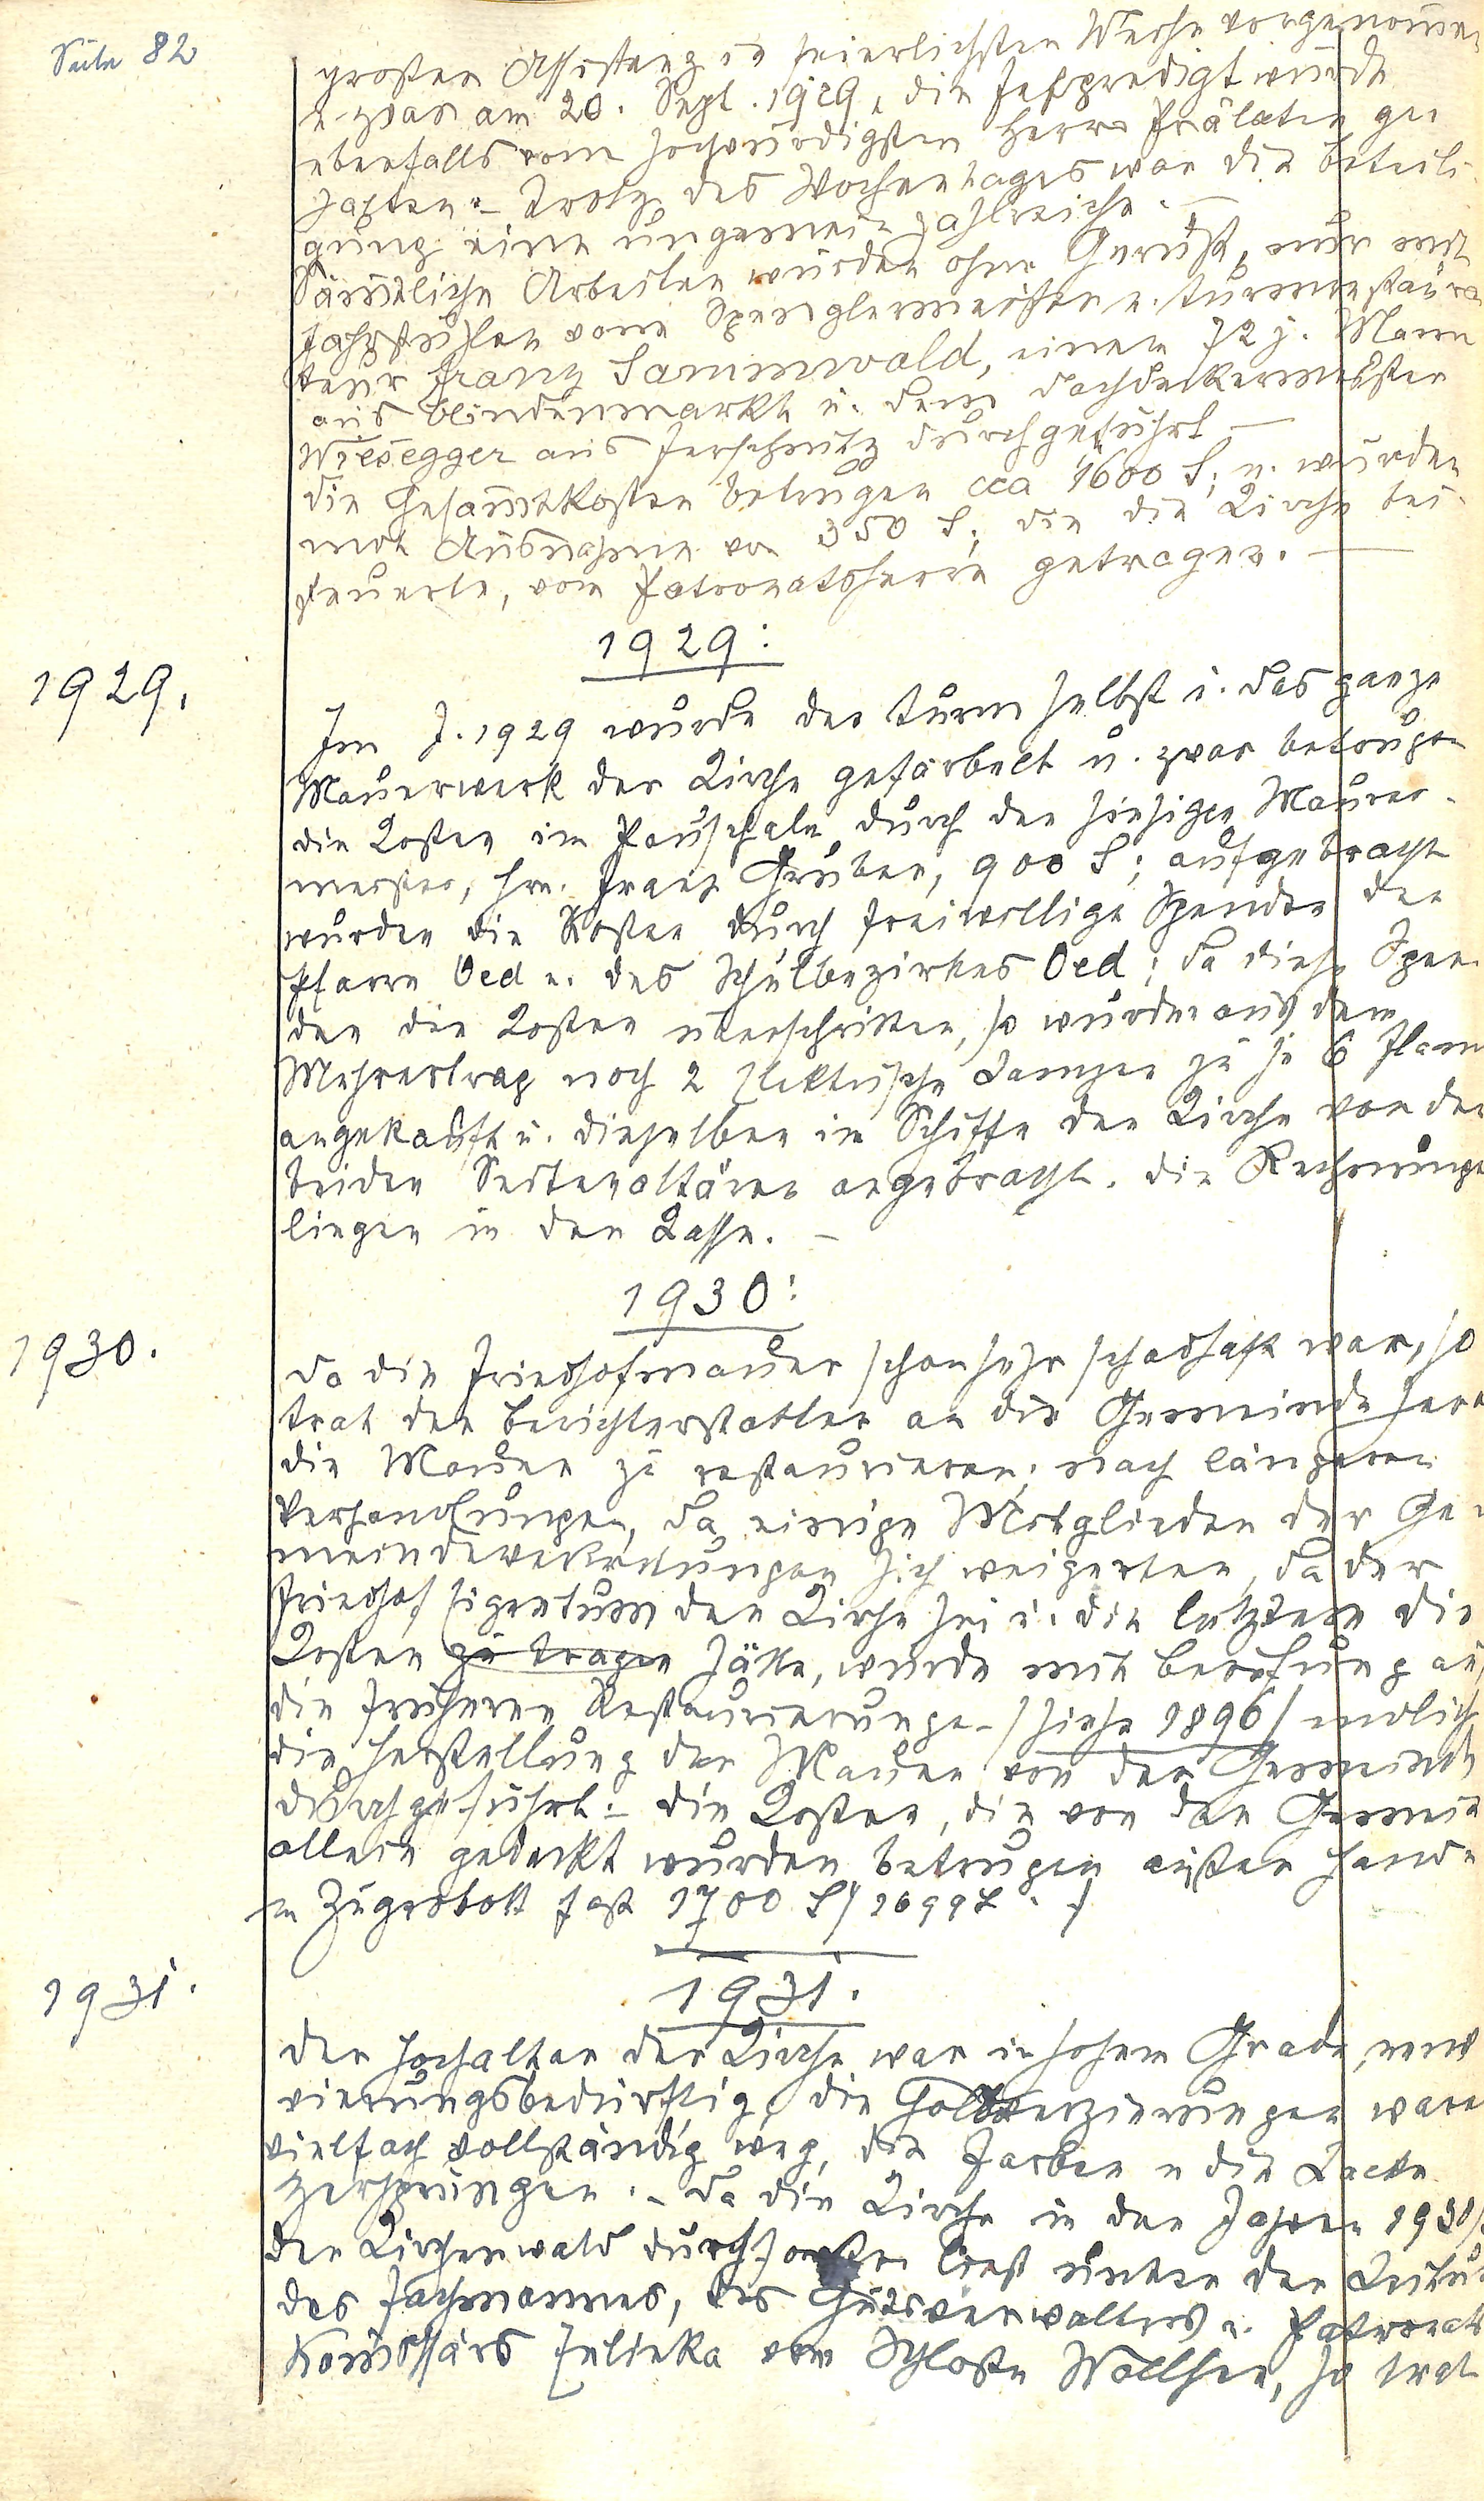 Seite 82
grosser Assistenz in feierlichster Weise vorgenommen
u. zwar am 20. Sept. 1929, die Festpredigt wurde
ebenfalls vom hochwürdigsten Herrn Prälaten ge-
halten. – Trotz des Wochentages war die Beteili-
gung eine ungemein zahlreiche. –
Sämtliche Arbeiten wurden ohne Gerüst, nur mit
Fahrstühlen vom Spenglermeister u. Turmrestaura-
teur Franz Sammwald, einem 72 j. Mann
aus Blindenmarkt u. dem Dachdeckermeister
Wiesegger aus Ferschnitz durchgeführt –
die Gesamtkosten betrugen cca 1600 S; u. wurden
mit Ausnahme von 350 S, die die Kirche bei-
steuerte, vom Patronatsherrn getragen. –
1929:
1929.
Im J. 1929 wurde der Turm selbst u. das ganze
Mauerwerk der Kirche gefärbelt u. zwar betrugen
die Kosten im Pauschale durch den hiesigen Maurer-
meister, Hrn. Franz Gruber, 900 S; aufgebracht
wurden die Kosten durch freiwillige Spenden der
Pfarre Oed u. des Schulbezirkes Oed; da diese Spen-
den die Kosten überschritten, so wurden aus dem
Mehrertrag noch 2 elektrische Lampen zu je 6 Flam
angekauft u. dieselben im Schiffe der Kirche vor den
beiden Seitenaltären angebracht. Die Rechnungen
liegen in der Kasse. –
1930:
1930.
Da die Friedhofmauer schon sehr schadhaft war, so
trat der Berichterstatter an die Gemeinde heran
die Mauer zu restaurieren; nach längeren
Verhandlungen, da einige Mitglieder der Ge-
meindevertretungen sich weigerten, da der
Friedhof Eigentum der Kirche sei u. die letztere die
Kosten zu tragen hätte, wurde mit Berufung auf
die früheren Restaurierungen /siehe 1896/ endlich
die Herstellung der Mauer von der Gemeinde
durchgeführt. – Die Kosten, die von der Gemein
allein gedeckt wurden betrugen außer Hand-
u Zugrobott fast 1700 S /1699 S./
1931.
1931.
Der Hochaltar der Kirche war in hohem Grade, reno
vierungsbedürftig, die Goldverzierungen waren
vielfach vollständig weg, die Farben u die Lacke
zersprungen. – Da die Kirche in den Jahren 1930/
den Kirchenwald durchforsten ließ unter der Leitung
des Fachmannes, des Gutsverwalters u. Patronats
Komissärs Zelinka vom Schloße Wallsee, so trat